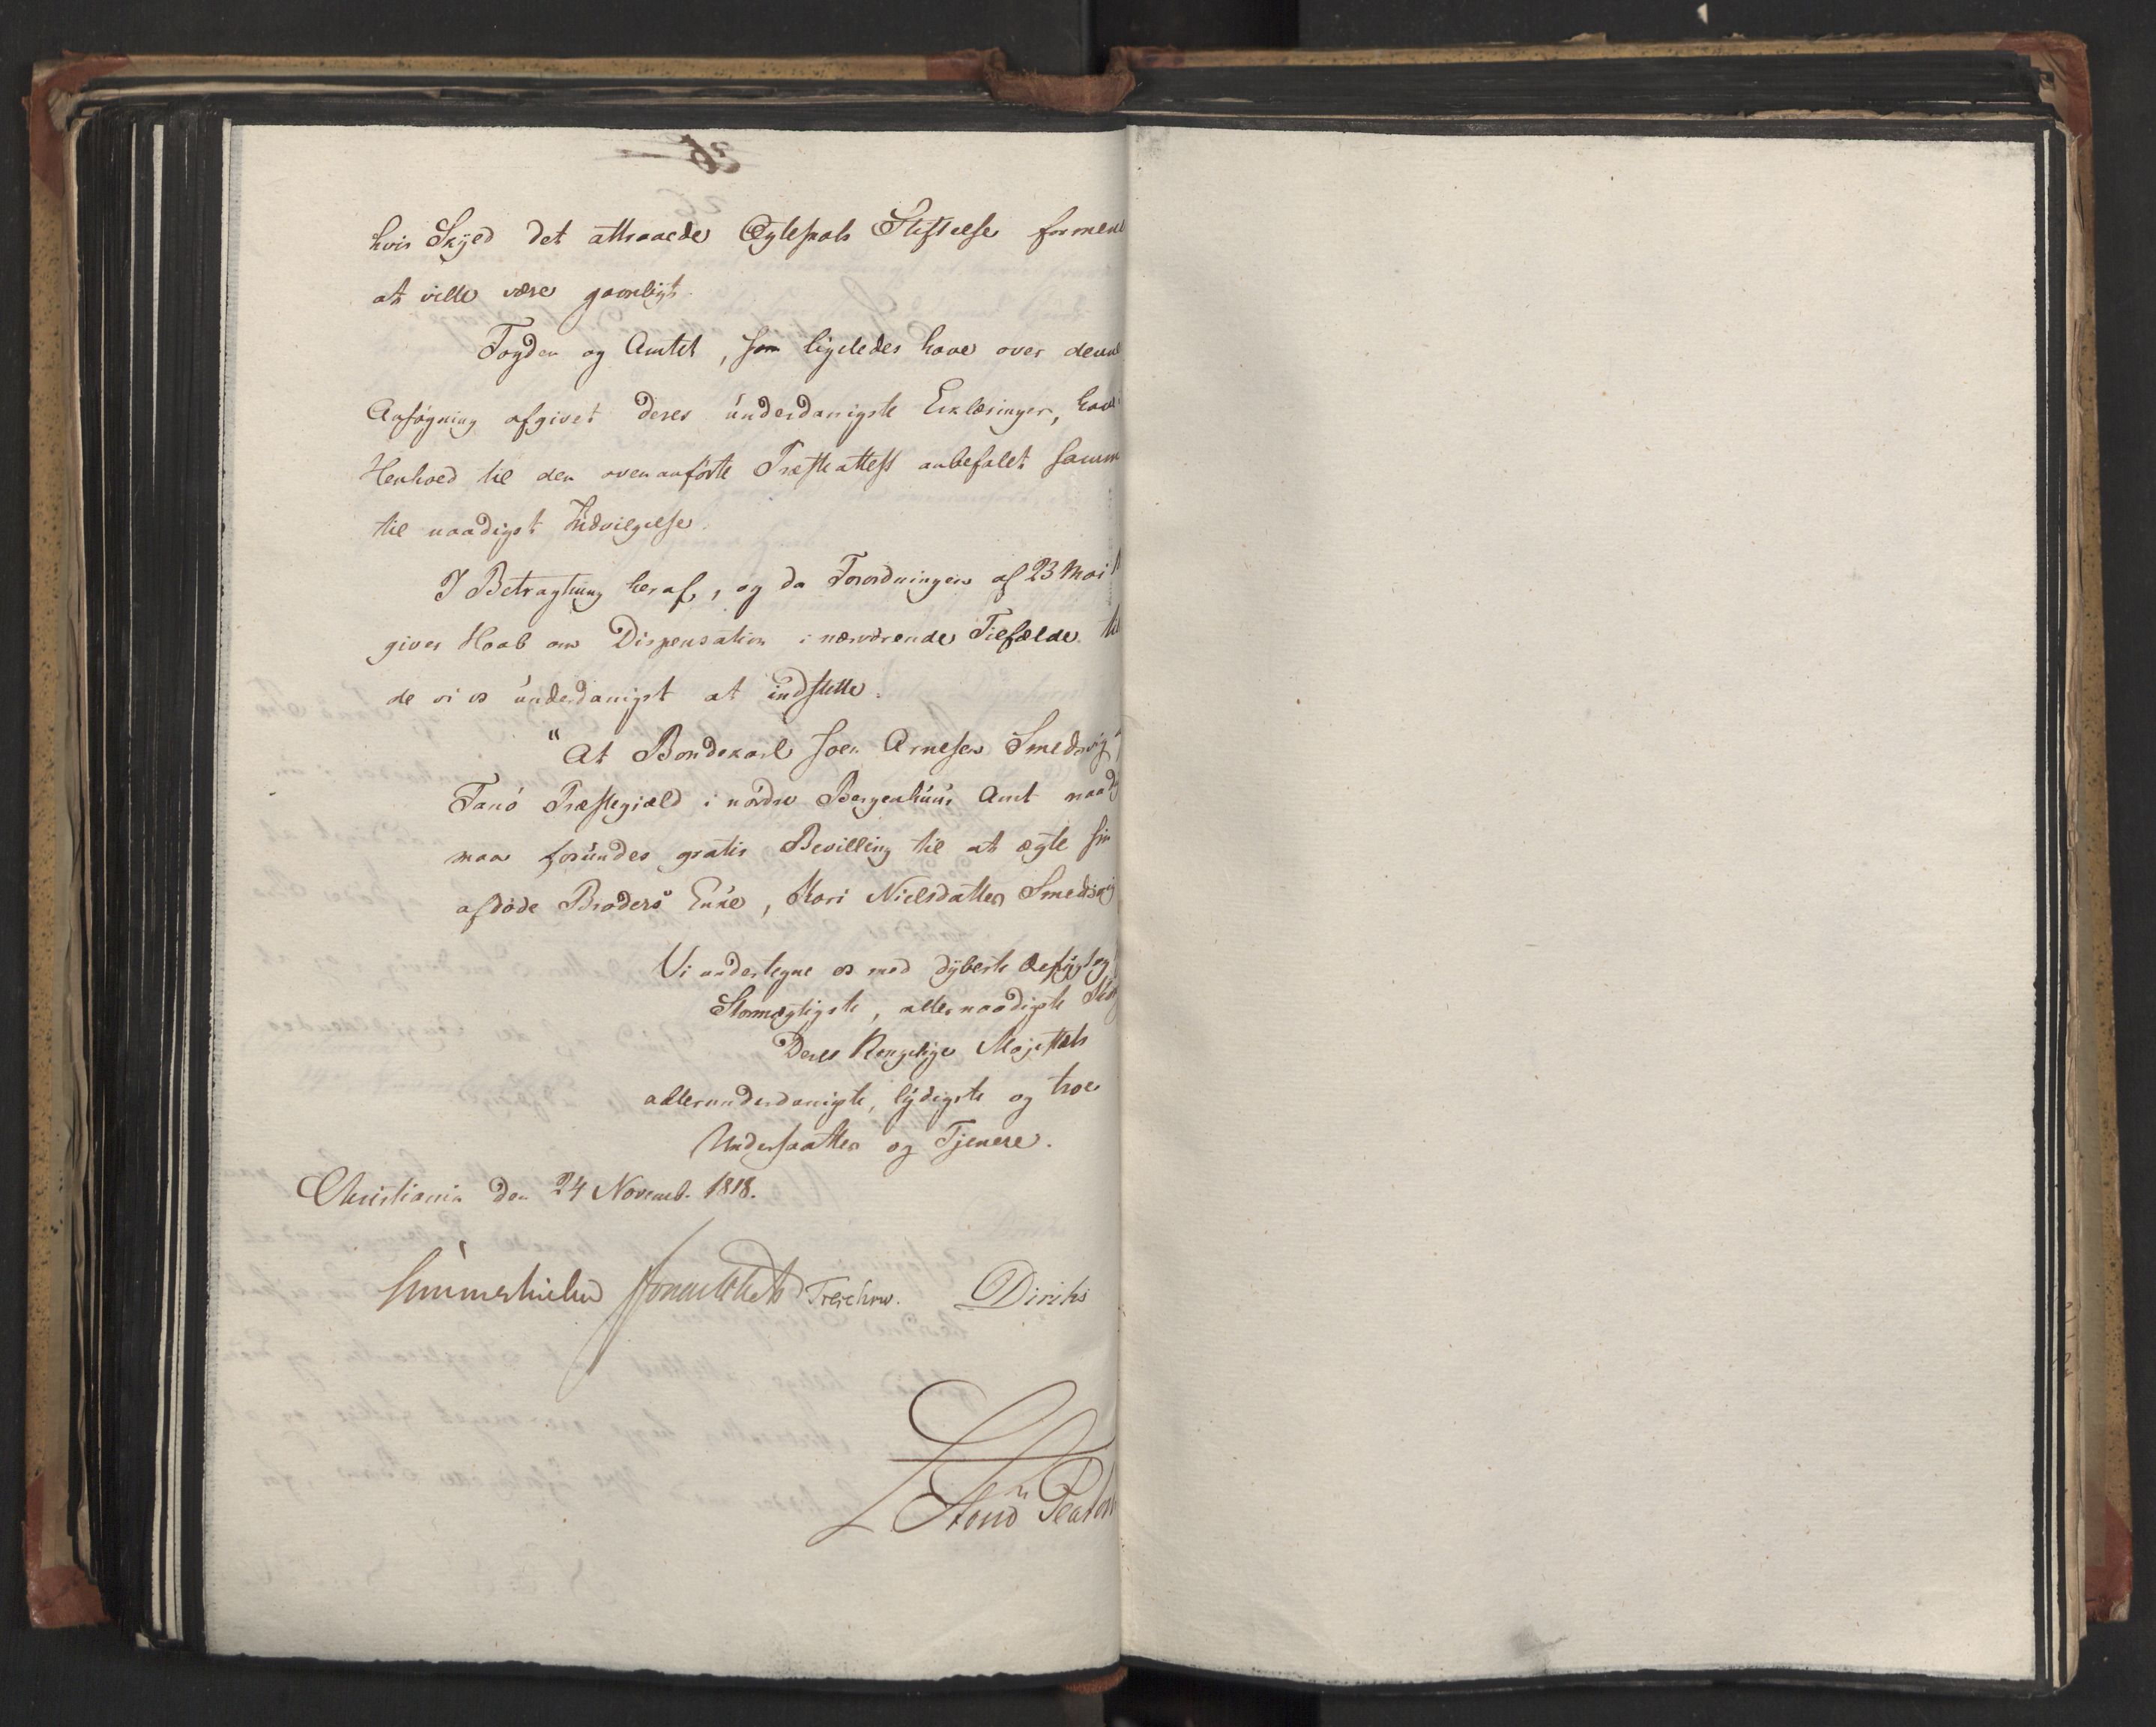 hvis Skyld det attraaede Ægteskabs Stiftelse formene
at ville være gavnligt.
Fogden og Amtet, som ligeledes have over denne
Ansøgning afgivet deres underdanigste Erklæringer, have
Henhold til den ovenanførte Præsteattest anbefalet samme
til naadigst Indvilgelse.
I Betragtning heraf, og da Forordningen af 23 Mai
giver Haab om Dispensation i nærværende Tilfælde
de vi os underdanigst at indstille:
"At Bondekarl Joen Arnesen Smedsvig
Fanø Præstegjæld i nordre Bergenhuus Amt naadigst
maa forundes gratis Bevilling til at ægte sin
afdøde Broders Enke, Kari Nielsdatter Smedsvig
Vi undertegne os med dybeste Ærefrygt
Stormægtigste, allernaadigste
Deres Kongelige Majestæts
allerunderdanigste, lydigste og troe
Undersaatter og Tjenere.
Christiania den 24 Novemb. 1818.
Sommerhielm Treschow. Diriks